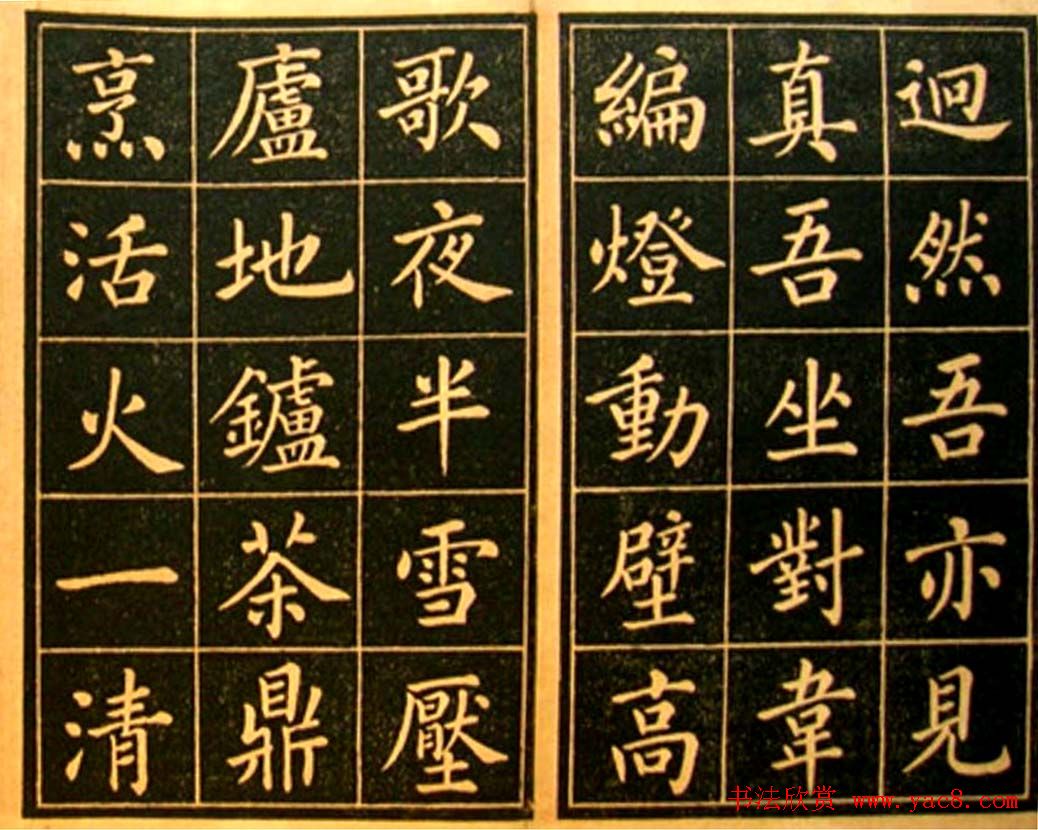 迥然吾亦見
真吾坐對韋
編燈動壁高
歌夜半雪壓
廬地鑪茶鼎
烹活火一清
书法欣赏 www.yac8.com